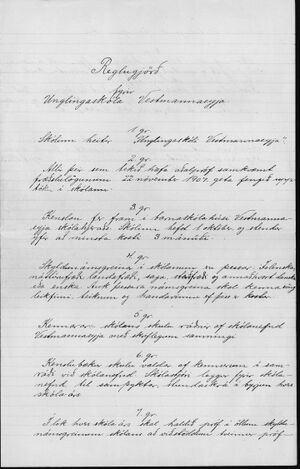 Reglugjörð
fyrir
Unglingaskóla Vestmannaeyja
1 gr.
Skólinn heitir "Unglingaskóli Vestmannaeyja"
2. gr.
Allir þeir sem tekið hafa fullnaðarpróf samkvæmt
fræðslulögunum 22 nóvember 1907 geta fengið upp-
töku í skólann
3. gr.
Kenslan fer fram í barnaskólahúsi Vestmanna-
eyja skólahjeraðs. Skólinn hefst 1 oktober og stendur
yfir að minsta kosti 3 mánuði
4. gr.
Skyldunámsgreinar í skólanum eru þessar: Íslenska,
náttúrufræði, landafræði, saga, og annaðhvort danska
eða enska. Auk þessara námsgreina skal kenna
leikfimi teikningu og handavinnu ef þess er kostur
5. gr.
Kennarar skólans skulu ráðnir af skólanefnd
Vestmannaeyja með skriflegum samningi
6. gr.
Kenslubækur skulu valdar af kennurum í sam-
ráði við skólanefnd. Skólastjóri leggur fyrir skóla-
nefnd til samþyktar stundaskrá í byrjun hvers
skólaárs
7. gr.
Í lok hvers skólaárs skal haldið próf í öllum skyldu-
námsgreinum skólans að viðstöddum tveimur próf-